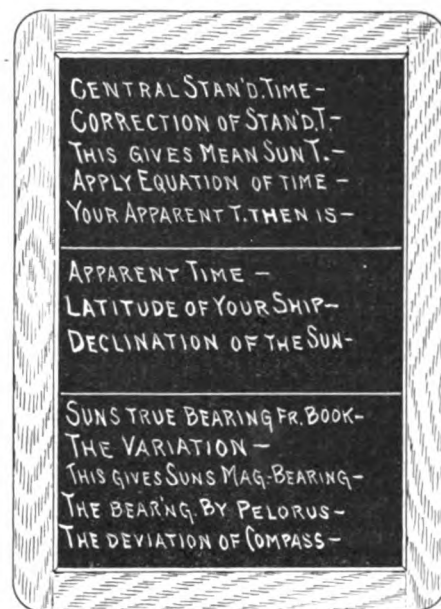 CENTRAL STAN'D. TIME-
CORRECTION OF STAN'D. T.-
THIS GIVES MEAN SUN T.-
APPLY EQUATION OF TIME-
YOUR APPARENT T. THEN IS-
APPARENT TIME-
LATITUDE OF YOUR SHIP-
DECLINATION OF THE SUN-
SUNS TRUE BEARING FR. BOOK-
THE VARIATION-
THIS GIVES SUNS MAG.-BEARING-
THE BEAR'NG. BY PELORUS-
THE DEVIATION OF COMPASS-